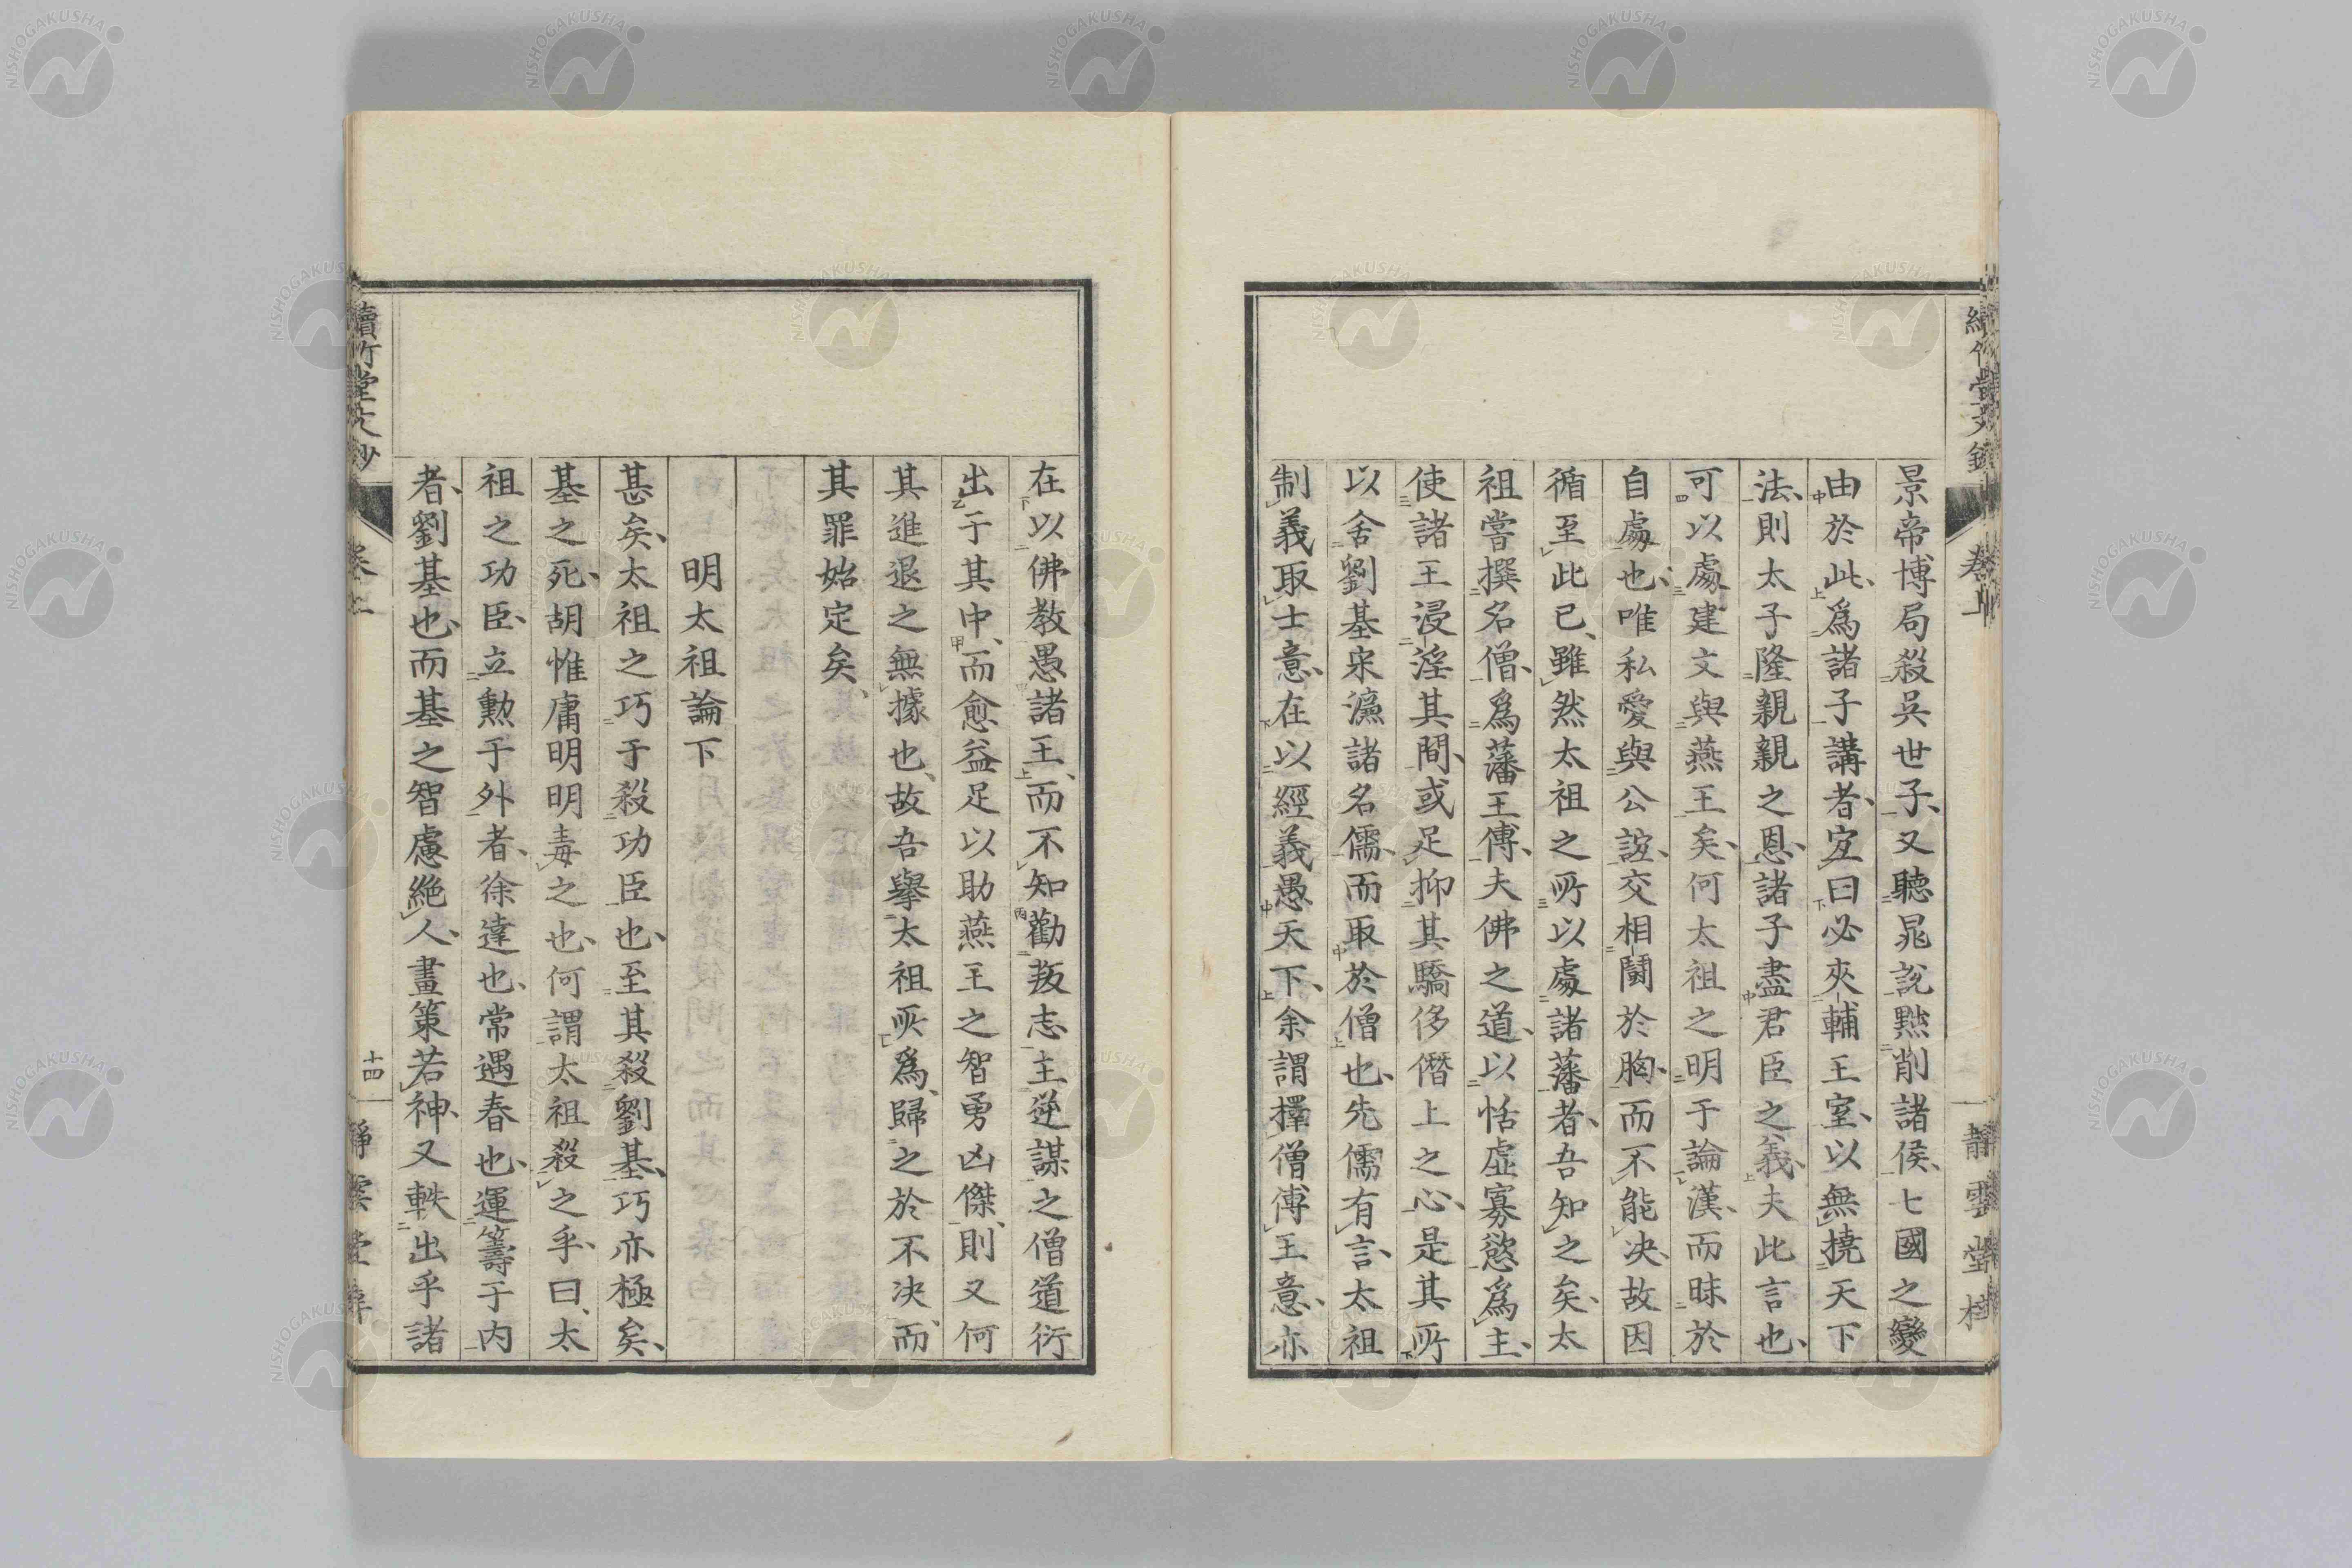 景帝博局殺吳世子、又聽晁說黜削諸侯、七國之變
由於此、爲諸子講者、宜曰必夾輔王室、以無撓天下
法、則太子隆親親之恩、諸子盡君臣之義、夫此言也、
可以處建文與燕王矣、何太祖之明于論漢、而昧於
自處也、唯私愛與公誼、交相鬪於胸、而不能决、故因
循至此已、雖然太祖之所以處諸藩者、吾知之矣、太
祖嘗撰名僧、爲藩王傅、夫佛之道、以恬虛寡慾爲主、
使諸王浸淫其間、或足抑其驕侈僭上之心、是其所
以舍劉基宋濂諸名儒、而取於僧也、先儒有言、太祖
制義取士意、在以經義愚天下、余謂擇僧傅王意、亦
在以佛教愚諸王、而不知勸叛志主逆謀之僧道衍
出于其中、而愈益足以助燕王之智勇凶傑、則又何
其進退之無據也、故吾擧太祖所爲、歸之於不决、而
其罪始定矣、
明太祖論下
甚矣、太祖之巧于殺功臣也、至其殺劉基、巧亦極矣、
基之死、胡惟庸明明毒之也、何謂太祖殺之乎、曰、太
祖之功臣、立勲于外者、徐達也、常遇春也、運籌于內
者、劉基也、而基之智慮絶人、畫策若神、又軼出乎諸
卷上
靜雲堂
續竹堂文鈔
十四
NISHOGAKUSHA